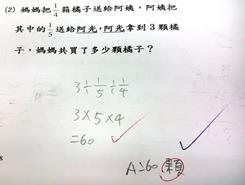 (2) 媽媽把 1/4 箱橘子送給阿姨，阿姨把
其中的 1/5 送給阿光，阿光拿到 3 顆橘
子，媽媽共買了多少顆橘子？
3÷1/5÷1/4
3×5×4
=60
A=60顆
8